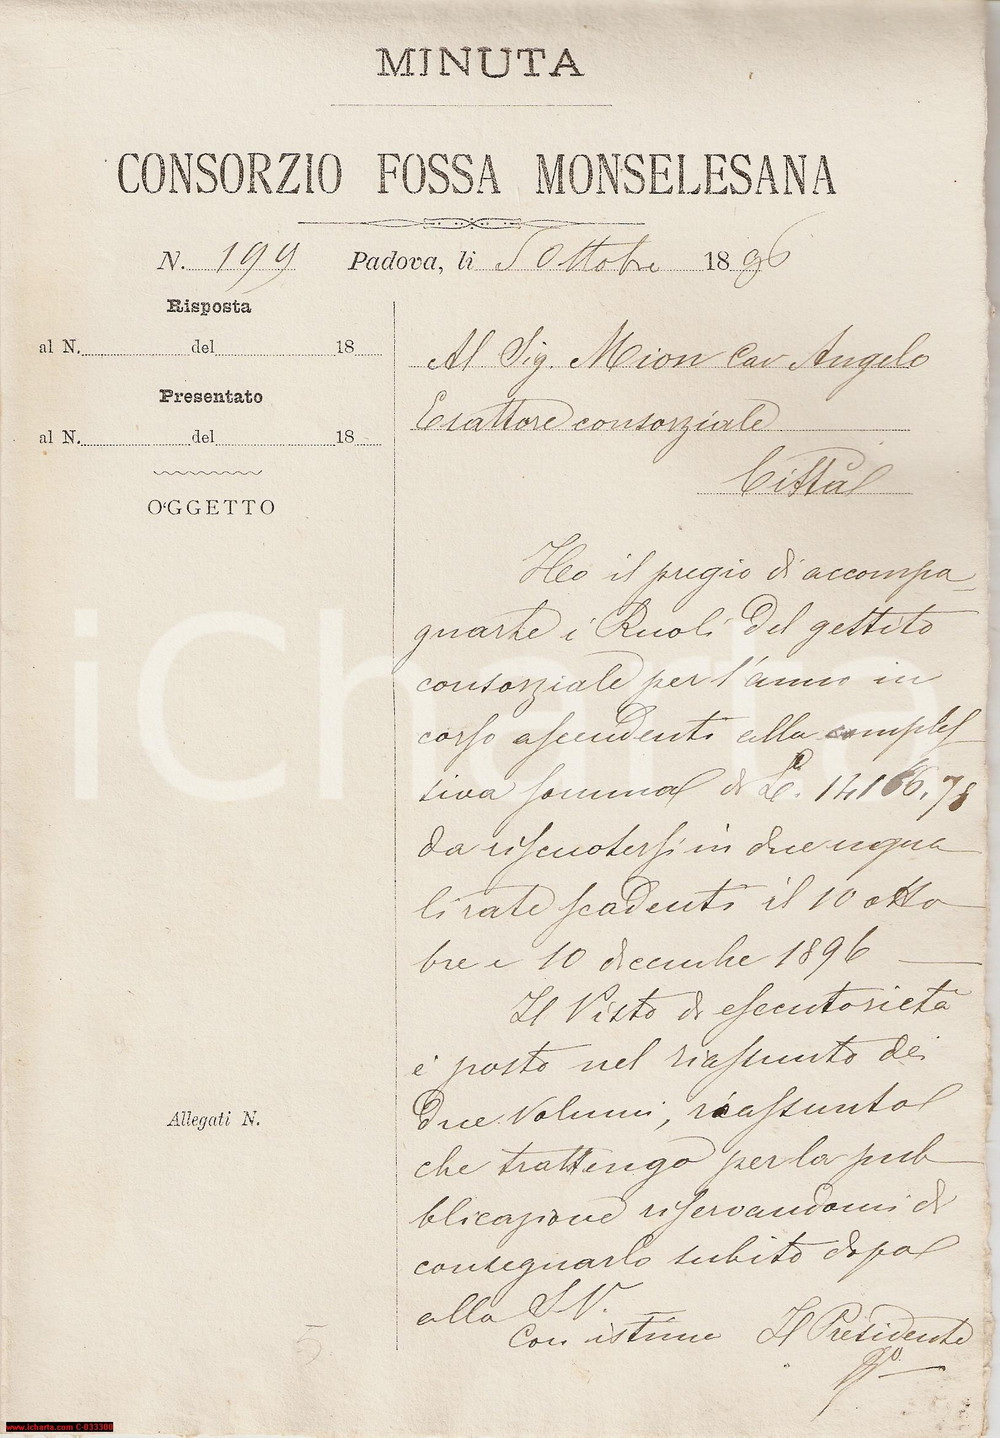 MINUTA
CONSORZIO FOSSA MONSELESANA
N. 199 Padova, li 5 Ottobre 1896
Risposta
al N. del 18
Presentato
al N. del 18
OGGETTO
Allegati N.
Al Sig. Mion Cav Angelo
Esattore consorziale
Città
Ho il pregio di accompa-
gnarle i Ruoli del gettito
consorziale per l'anno in
corso ascendenti alla comples
siva somma di L. 14166.78
da riscuotersi in due ugua
li rate scadenti il 10 otto
bre e 10 dicembre 1896
Il Visto di esecutorietà
è posto nel riassunto dei
due volumi, riassunto
che trattengo per la pub
blicazione riservandomi di
consegnarlo subito dopo
alla S.V.
Con istima Il Presidente
iCharta
www.icharta.com C-033300